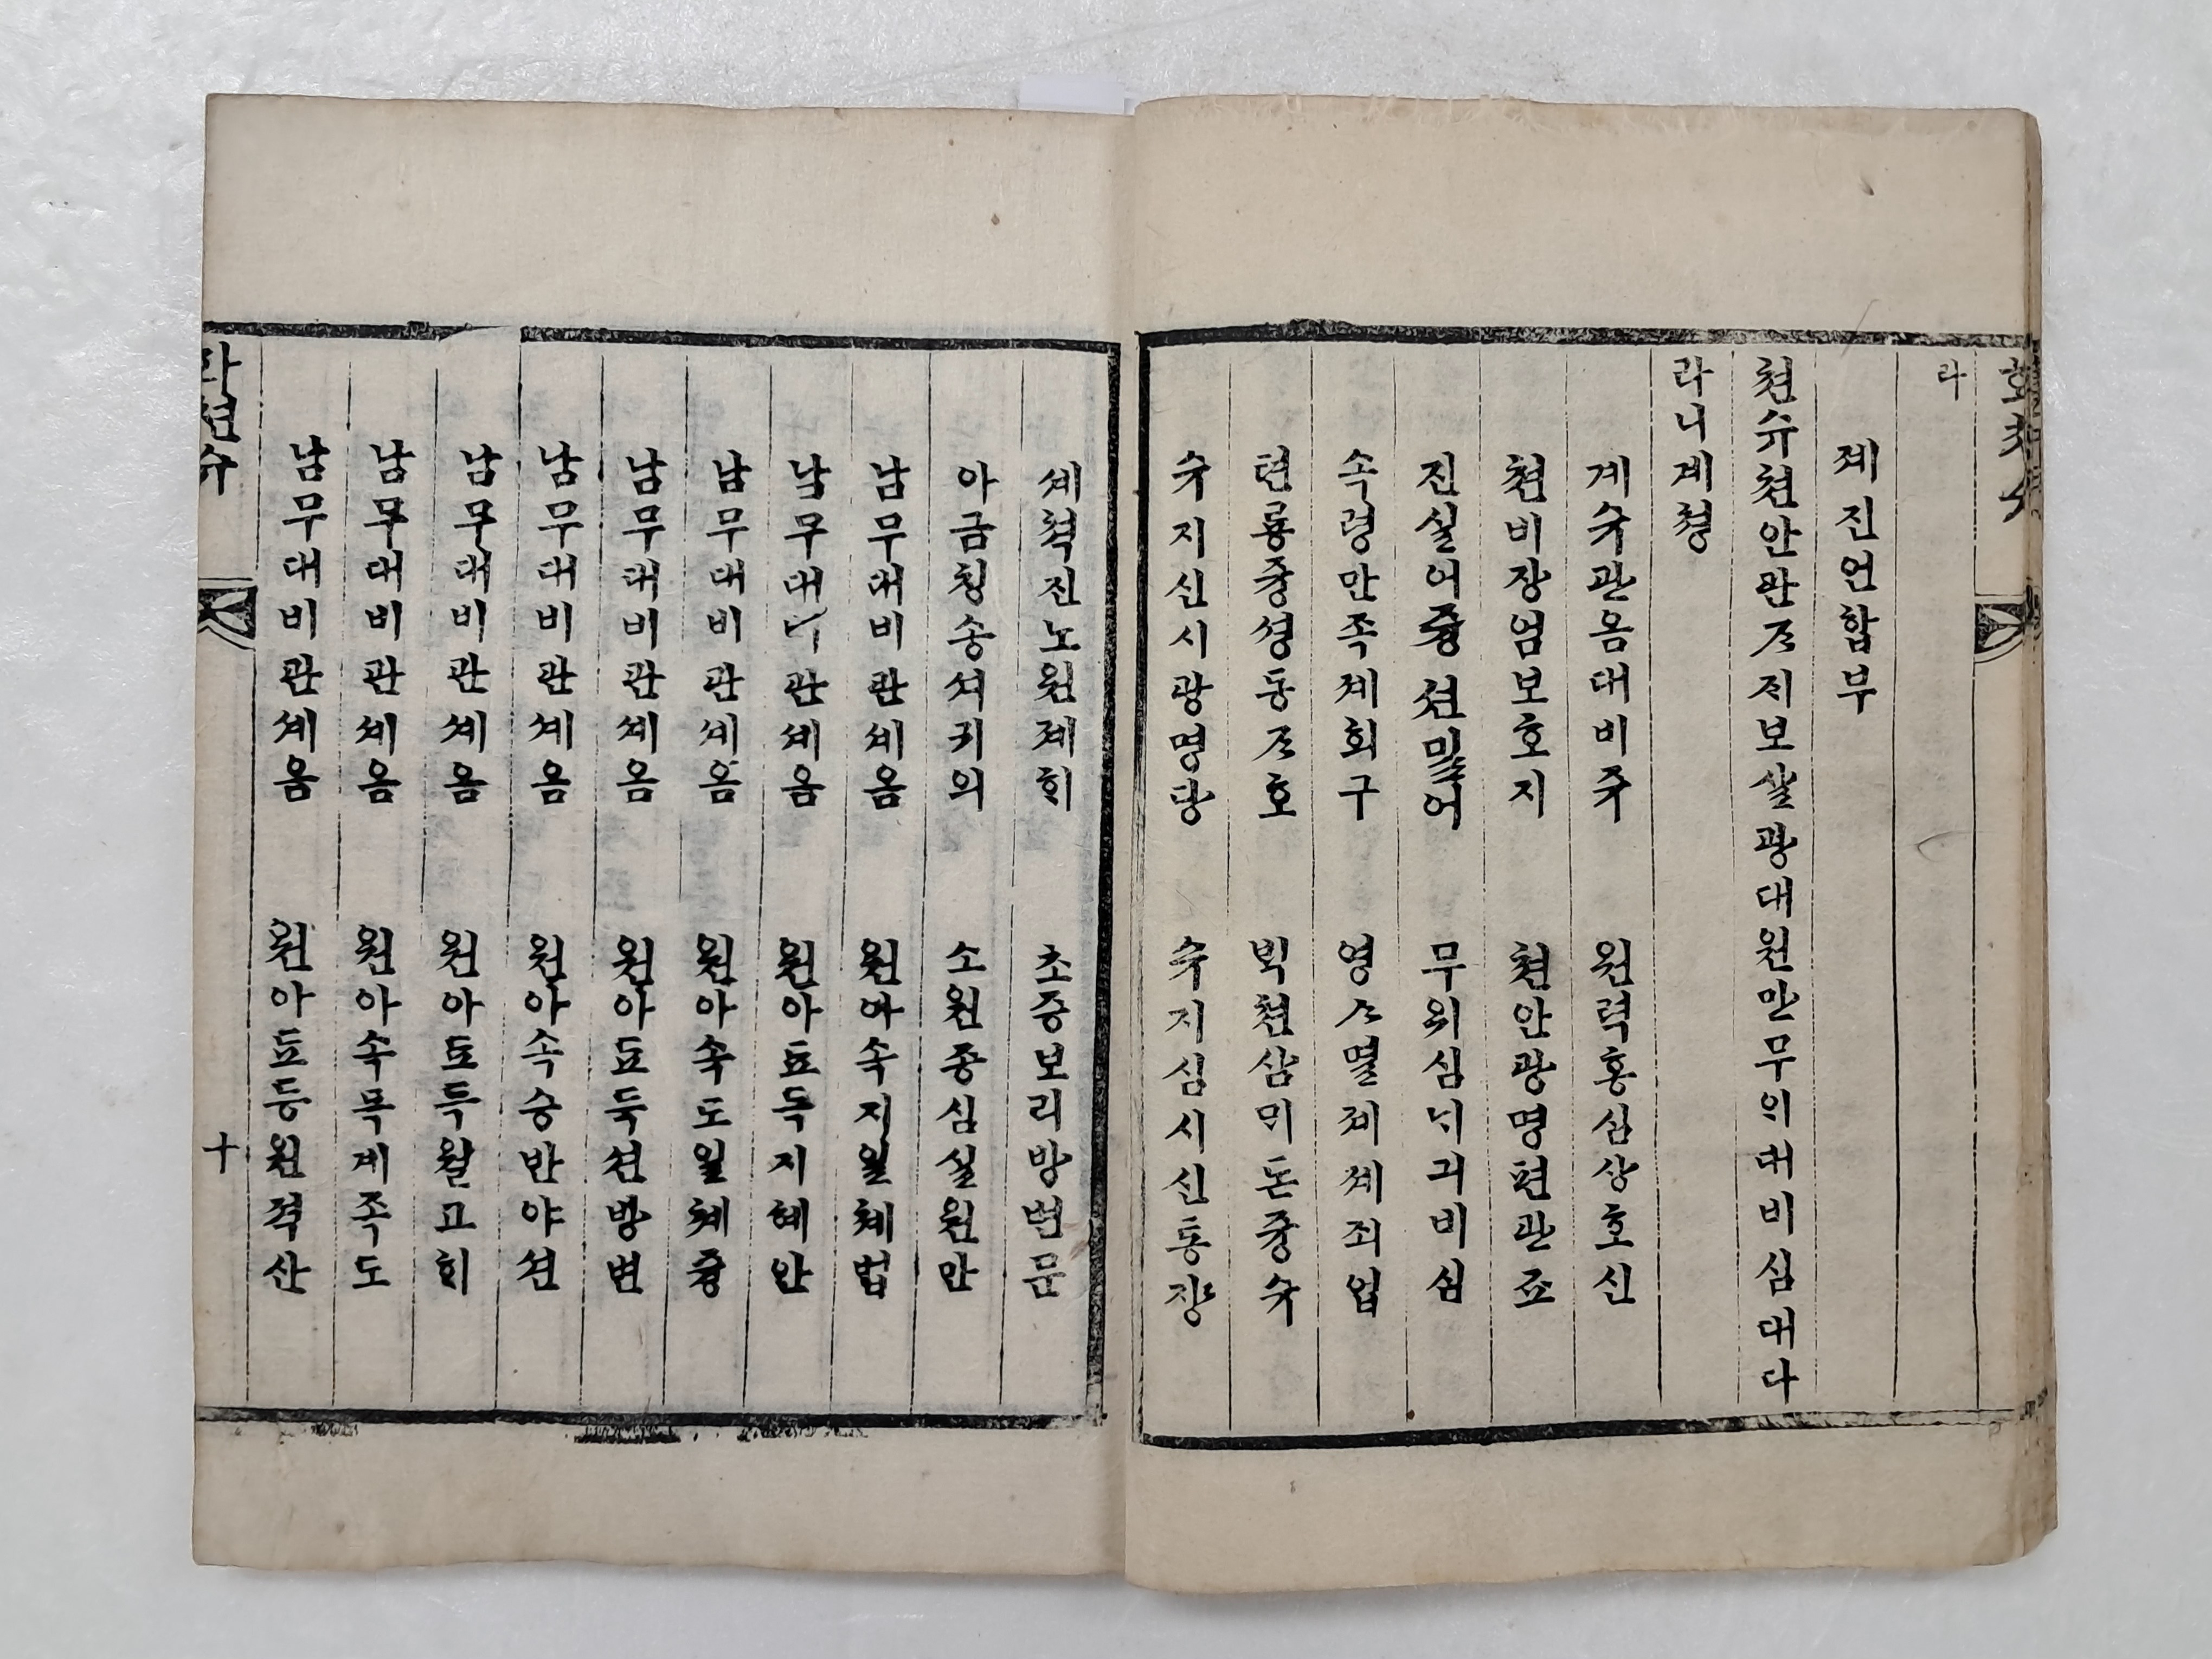 라
졔진언합부
쳔슈쳔안관ᄌᆞ저보살광대원만무의대비심대다
라니계쳥
계슈관음대비쥬 원력홍심상호신
쳔비장엄보호지 쳔안광명변관죠
진실어즁션밀어 무위심ᄂᆡ긔비심
속령만족졔희구 영ᄉᆞ멸졔졔죄업
텬룡즁셩동ᄌᆞ호 ᄇᆡᆨ쳔삼ᄆᆡ돈즁슈
슈지신시광명당 슈지심시신통장
셰쳑진노원졔ᄒᆡ 초증보리방변문
아금칭송셔귀의 소원죵심실원만
남무대비관셰음 원아속지일쳬법
남무대비관셰음 원아죠득지혜안
남무대비관셰음 원아속도일쳬즁
남무대비관셰음 원아죠득션방변
남무대비관셰음 원아속승반야션
남무대비관셰음 원아죠득월고ᄒᆡ
남무대비관셰음 원아속득계족도
남무대비관셰음 원아죠등원젹산
쳔슈
十